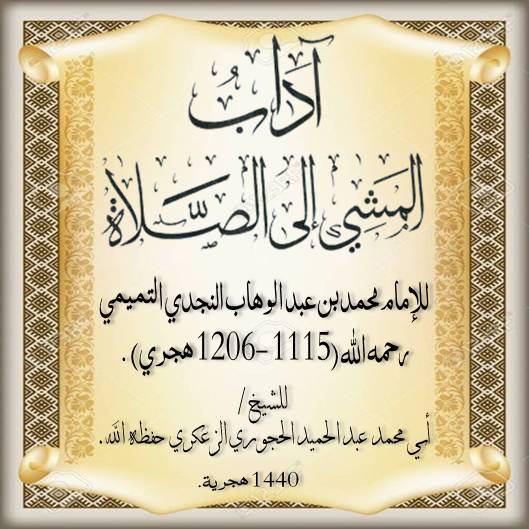 آدَابُ
المَشْيِ إلى الصَّلَاةِ
للإمام محمد بن عبد الوهاب النجدي التميمي
رحمه الله (1115 – 1206 هجري) .
للشيخ /
أبي محمد عبد الحميد الحجوري الزعكري حفظه الله .
1440 هجرية.